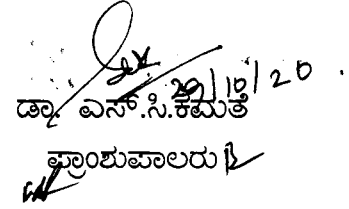 29/10/20
ಡಾ. ಎಸ್.ಸಿ.ಕಮತೆ
ಪ್ರಾಂಶುಪಾಲರು